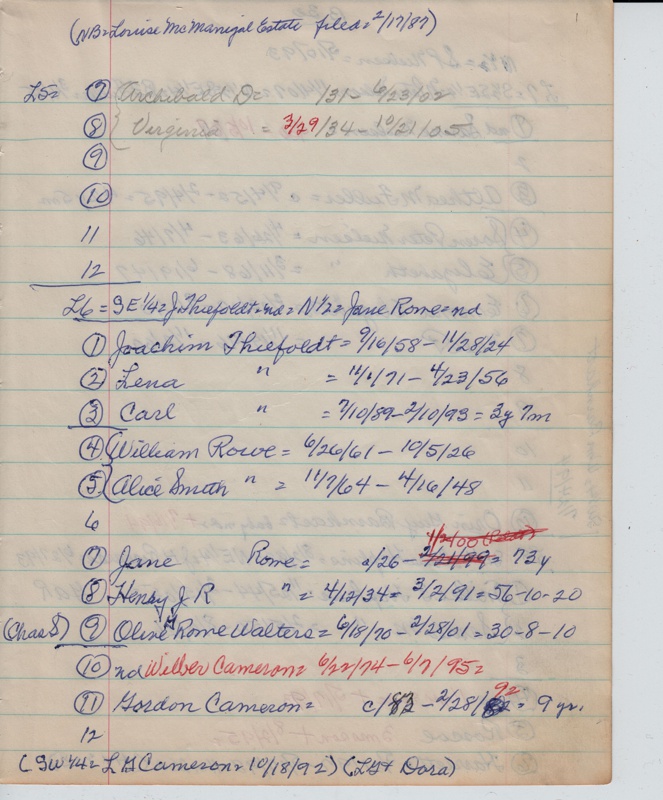 1
(NB=Louise McManigal Estate filed=2/17/87)
L5= 7 Archibald D= /31- 6/23/02
8 Virginia = 3/29/34- 10/21/05
9
10
11
12
L6= SE 1/4= J. Thiefoldt=nd= N 1/2= Jane Rowe=nd
1 Joachim Thiefoldt= 9/16/58- 11/28/24
2 Lena " = 4/23/56
3 Carl " = 7/10/89- 2/10/93= 3y 7m
4 William Rowe= 6/26/61- 10/5/26
5 Alice Smath " = 11/7/64- 4/16/48
6
7 Jane Rowe= c/26- = 73y
8 Henry J R " = 4/12/34= 3/2/91=56-10-20
(Chas S) 9 Olive Rowe Walters= 6/18/70- 2/28/01=30-8-10
10 nd Wilber Cameron= 6/22/74- 6/7/95=
11 Gordon Cameron= c/83- 2/28/92= 9 yr.
12
(SW 1/4= L G Cameron=10/18/92) (LG+ Dora)